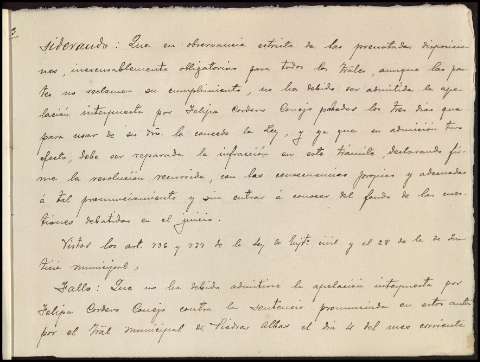 3.
siderando: Que en observancia estricta de las precitadas disposicio-
nes, inexcusablemente obligatorias para todos los trales, aunque las par-
tes no reclamen su cumplimiento, no ha debido ser admitida la ape-
lación interpuesta por Felipa Cordero Conejo pasados los tres días que
para usar de su dro. la concede la Ley, y ya que su admisión tuvo
efecto, debe ser reparada la infracción en este trámite, declarando fir-
me la resolución recurrida, con las consecuencias propias y adecuadas
á tal pronunciamiento y sin entrar á conocer del fondo de las cues-
tiones debatidas en el juicio.
Vistos los art. 736 y 737 de la Ley de Enjto. civil y el 28 de la de Jus-
ticia municipal,
Fallo: Que no ha debido admitirse la apelación interpuesta por
Felipa Cordero Conejo contra la sentencia pronunciada en estos autos
por el tral municipal de Piedras Albas el día 4 del mes corriente